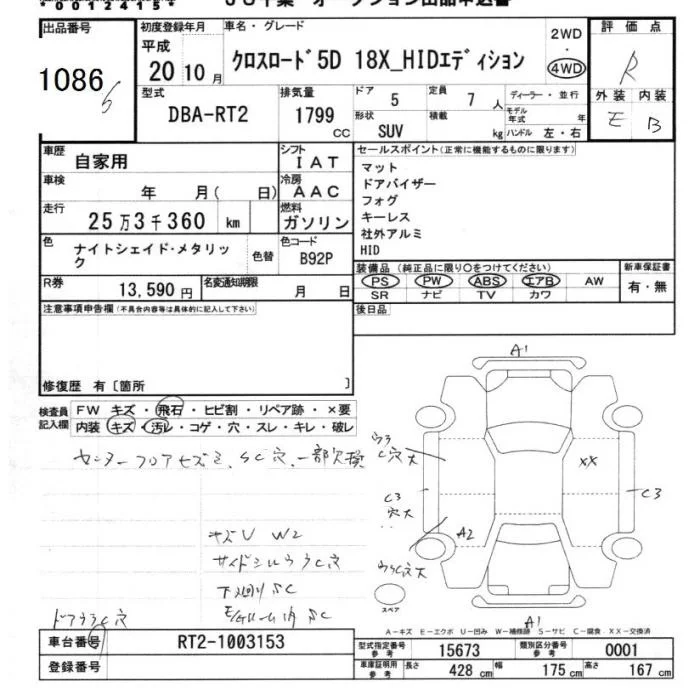 *0012415*
出品番号
1086
初度登録年月
平成
20 10月
車名・グレード
クロスロード5D 18X_HIDエディション
2WD
・
4WD
評価点
R
外装 内装
E B
型式
DBA-RT2
排気量
1799
CC
ドア
5
定員
7 人
形状
SUV
積載
kg
ディーラー・並行
モデル年式 年
ハンドル 左・右
車歴
自家用
シフト
IAT
車検
年 月( 日)
冷房
AAC
走行
25万3千360 km
燃料
ガソリン
色
ナイトシェイド・メタリック
色替
色コード
B92P
R券
13,590 円
名変通知期限
月 日
セールスポイント(正常に機能するものに限ります)
マット
ドアバイザー
フォグ
キーレス
社外アルミ
HID
装備品(純正品に限り〇をつけてください)
PS PW ABS エアB AW
SR ナビ TV カワ
新車保証書
有・無
後日品
注意事項申告欄(不具合内容等は具体的に記入して下さい)
修復歴 有〔箇所 〕
検査員記入欄
FW キズ・飛石・ヒビ割・リペア跡・×要
内装 キズ・汚レ・コゲ・穴・スレ・キレ・破レ
A1
C穴大
XX
C3
穴大
C3
A2
キズU W2
下廻り SC
スペア
A1
A-キズ E-エクボ U-凹み W-補修跡 S-サビ C-腐食 XX-交換済
車台番号
RT2-1003153
登録番号
型式指定番号
参考
15673
類別区分番号
参考
0001
車庫証明用
参考
長さ 428 cm 幅 175 cm 高さ 167 cm